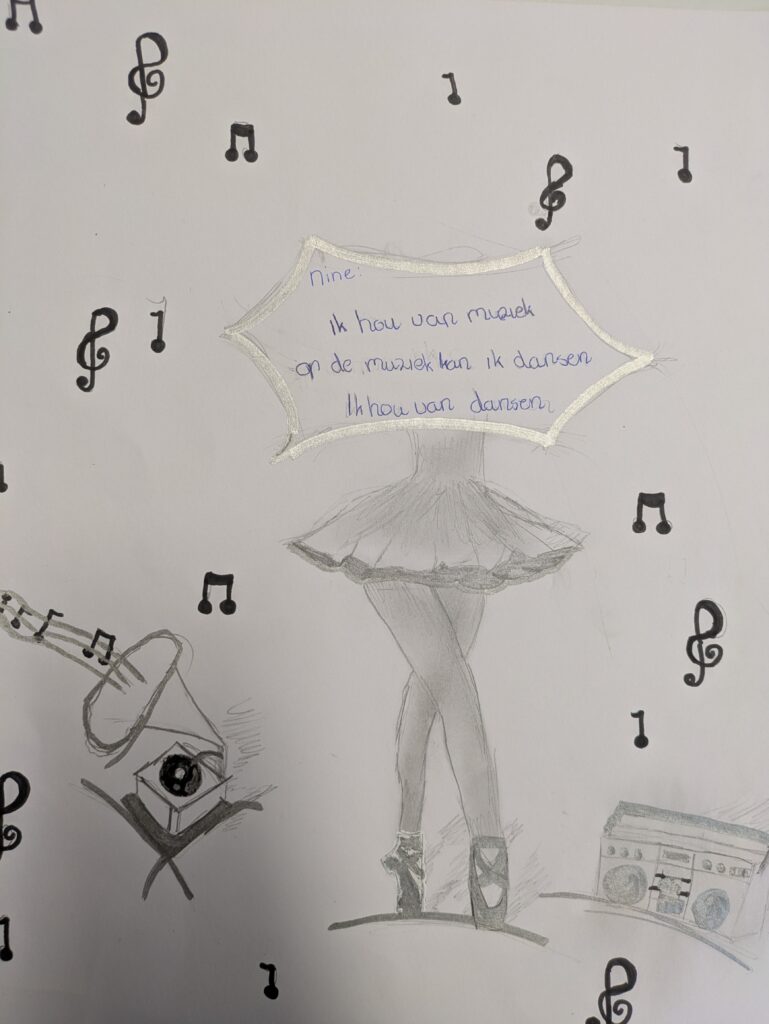 nine:
ik hou van muziek
op de muziek kan ik dansen
Ik hou van dansen